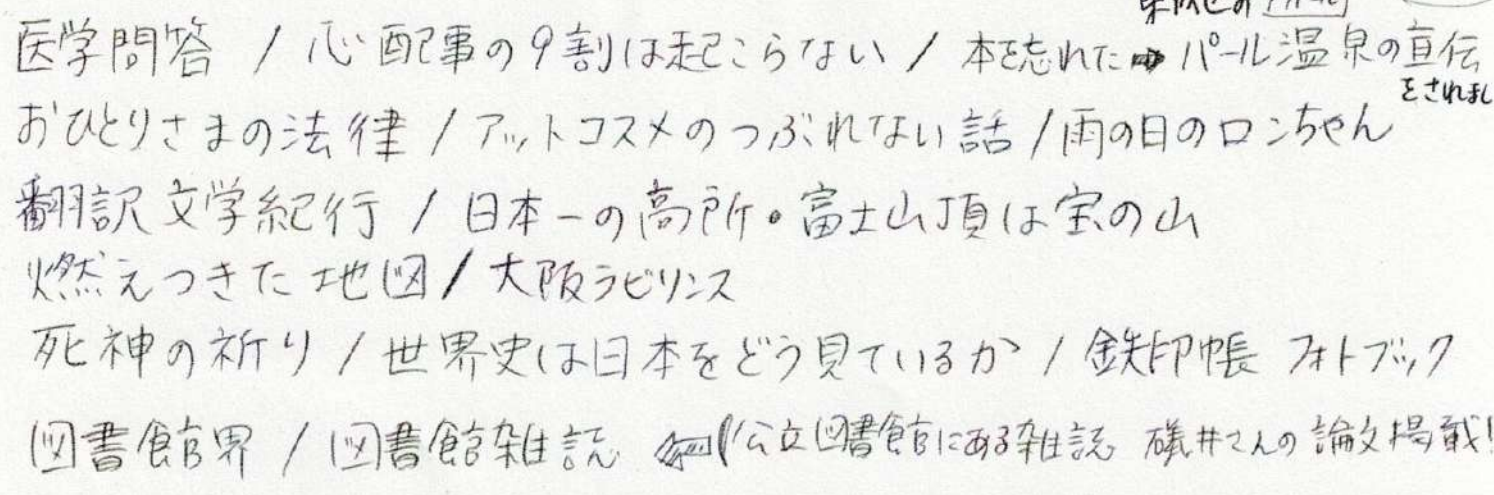 医学問答 / 心配事の9割は起こらない / 本を忘れた パール温泉の宣伝
をされまし
おひとりさまの法律 / アットコスメのつぶれない話 / 雨の日のロンちゃん
翻訳文学紀行 / 日本一の高所・富士山頂は宝の山
燃えつきた地図 / 大阪ラビリンス
死神の祈り / 世界史は日本をどう見ているか / 鉄印帳 フォトブック
図書館界 / 図書館雑誌 (公立図書館にある雑誌 礒井さんの論文掲載!